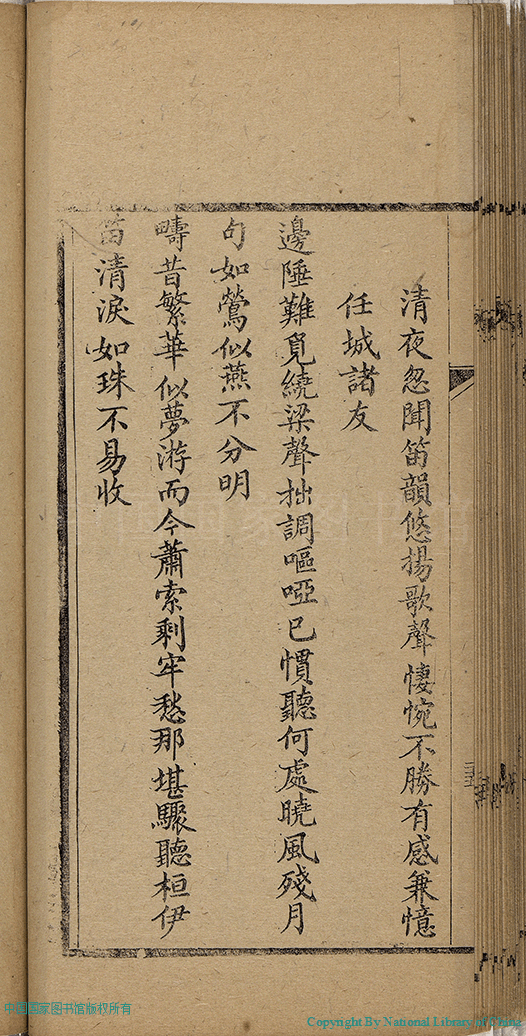 清夜忽聞笛韻悠揚歌聲悽惋不勝有感兼憶
任城諸友
邊陲難覓繞梁聲拙調嘔啞已慣聽何處曉風殘月
句如鶯似燕不分明
疇昔繁華似夢游而今蕭索剩牢愁那堪驟聽桓伊
笛清淚如珠不易收
中国国家图书馆版权所有
Copyright By National Library of China